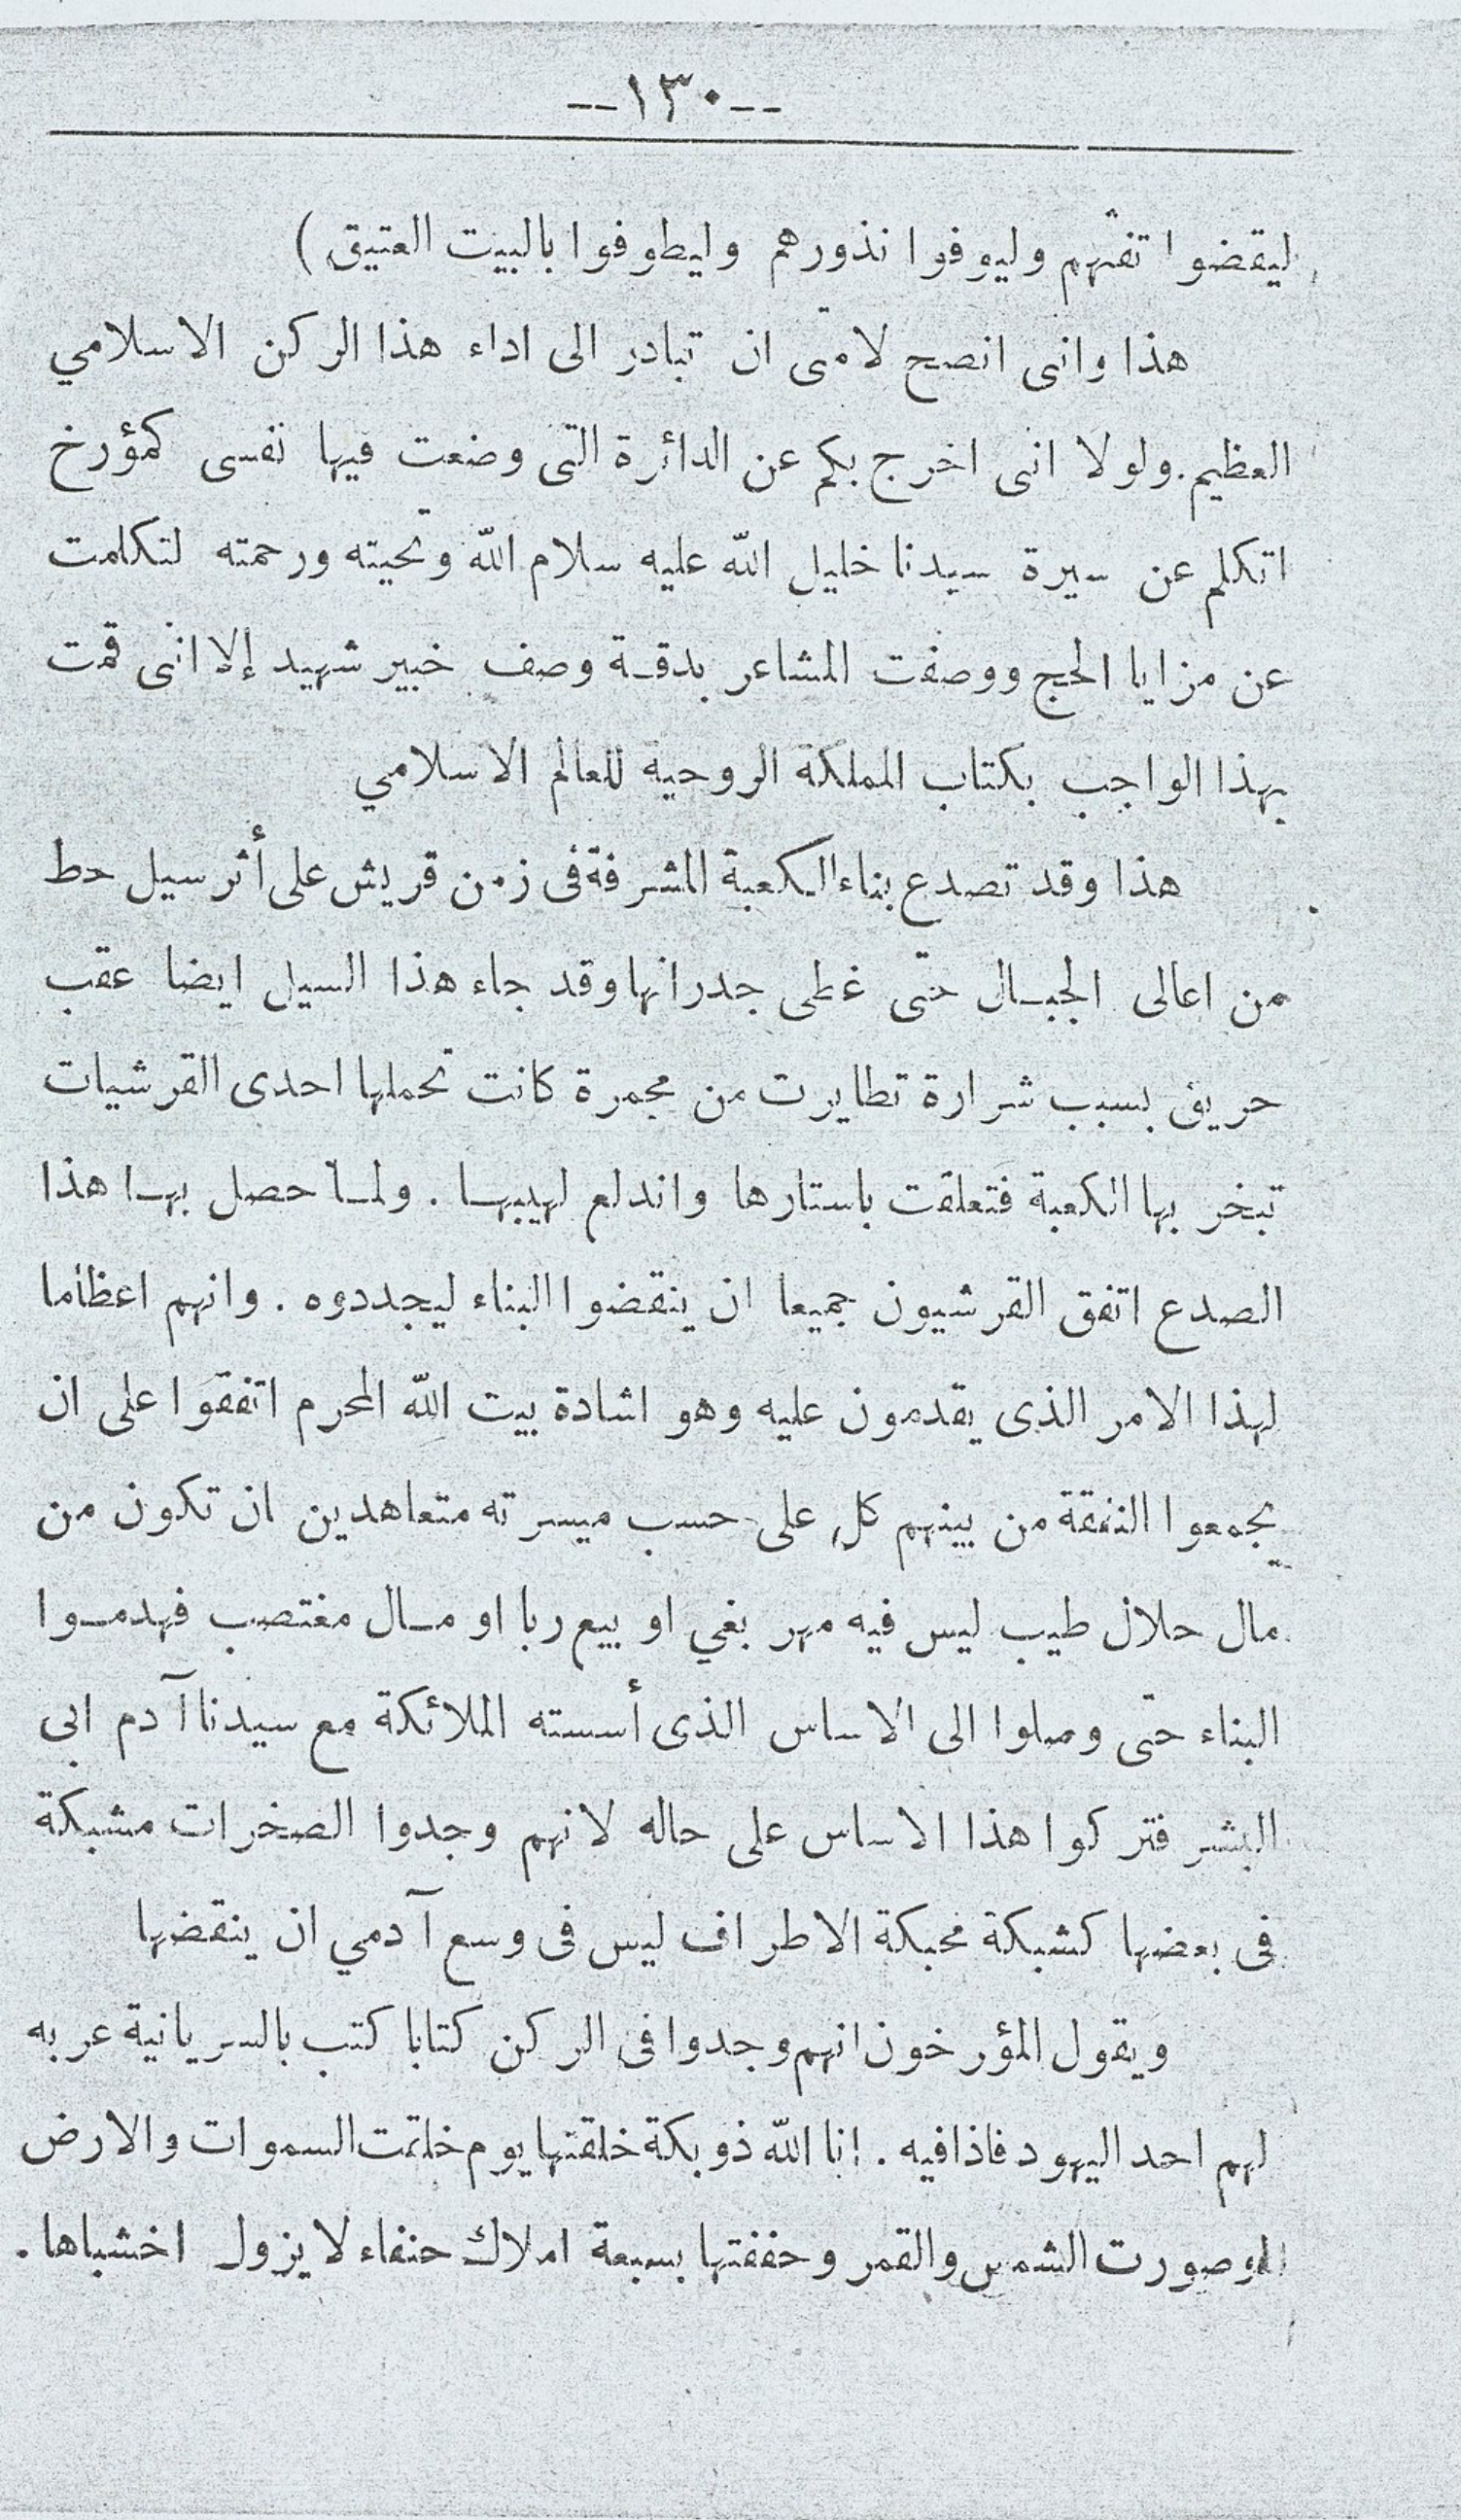 --١٣٠--
ليقضوا تفثهم وليوفوا نذورهم وليطوفوا بالبيت العتيق )
هذا وانى انصح لامتى ان تبادر الى اداء هذا الركن الاسلامي
العظيم. ولولا انى اخرج بكم عن الدائرة التى وضعت فيها نفسى كمؤرخ
اتكلم عن سيرة سيدنا خليل الله عليه سلام الله وتحيته ورحمته لتكلمت
عن مزايا الحج ووصفت المشاعر بدقة وصف خبير شهيد إلا انى قمت
بهذا الواجب بكتاب المملكة الروحية للعالم الاسلامي
هذا وقد تصدع بناء الكعبة المشرفة فى زمن قريش على أثر سيل حط
من اعالى الجبال حتى غطى جدرانها وقد جاء هذا السيل ايضا عقب
حريق بسبب شرارة تطايرت من مجمرة كانت تحملها احدى القرشيات
تبخر بها الكعبة فتعلقت باستارها واندلع لهيبها . ولما حصل بها هذا
الصدع اتفق القرشيون جميعا ان ينقضوا البناء ليجددوه . وانهم اعظاما
لهذا الامر الذى يقدمون عليه وهو اشادة بيت الله المحرم اتفقوا على ان
يجمعوا النفقة من بينهم كل على حسب ميسرته متعاهدين ان تكون من
مال حلال طيب ليس فيه مهر بغي او بيع ربا او مال مغتصب فهدموا
البناء حتى وصلوا الى الاساس الذى أسسته الملائكة مع سيدنا آدم ابى
البشر فتركوا هذا الاساس على حاله لانهم وجدوا الصخرات مشبكة
فى بعضها كشبكة محبكة الاطراف ليس فى وسع آدمي ان ينقضها
ويقول المؤرخون انهم وجدوا فى الركن كتابا كتب بالسريانية عربه
لهم احد اليهود فاذا فيه . انا الله ذو بكة خلقتها يوم خلقت السموات والارض
وصورت الشمس والقمر وحففتها بسبعة املاك حنفاء لا يزول اخشباها .